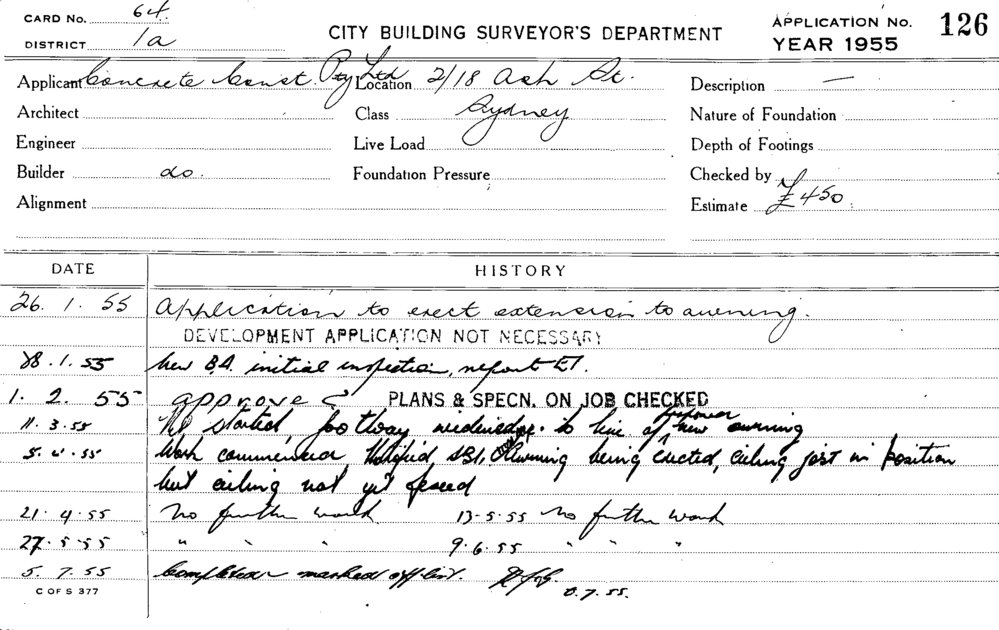 CARD No. 64.
DISTRICT 1a
CITY BUILDING SURVEYOR'S DEPARTMENT
APPLICATION No. 126
YEAR 1955
Applicant Concrete Const. Pty Ltd Location 2/18 Ash St. Description —
Architect Class Sydney Nature of Foundation
Engineer Live Load Depth of Footings
Builder do. Foundation Pressure Checked by
Alignment Estimate £450.
DATE HISTORY
26. 1. 55 Application to erect extension to awning.
DEVELOPMENT APPLICATION NOT NECESSARY
28.1.55 New B.A. initial inspection, report
1. 2. 55 approve PLANS & SPECN. ON JOB CHECKED
11. 3. 55 started, footway to line of new awning
55 Work commenced Notified Awning being erected, ceiling joist in position
but ceiling not yet
21. 4. 55 No further work 13.5.55 No further work
27. 5. 55 " " " 9.6.55 " " "
5. 7. 55 Completed marked off list. 7.55.
C OF S 377